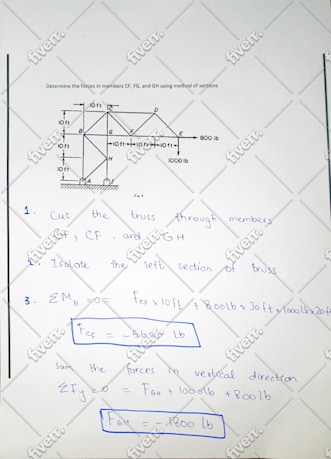 Determine the forces in members CF, FG, and GH using method of sections
10 ft
D
10 ft
B
G
F
E
800 lb
10 ft
10 ft
10 ft
10 ft
1000 lb
H
10 ft
A
1. Cut the truss through members
CF and GH
2. Isolate the left section of truss
3. ΣM = 0 = × 10ft + 800lb × 30ft + 1000lb × 20ft
lb
Sum the forces in vertical direction
ΣFy = 0 = FGH + 1000lb + 800lb
FGH = - 1800 lb
fiverr.
fiverr.
fiverr.
fiverr.
fiverr.
fiverr.
fiverr.
fiverr.